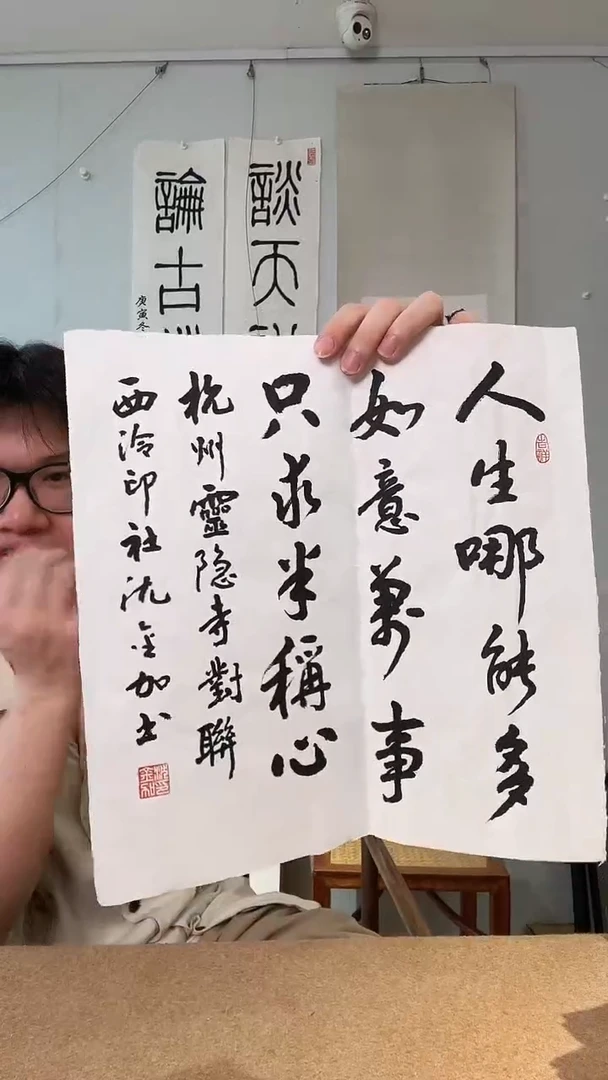 人生哪能多
如意萬事
只求半稱心
杭州靈隐寺對聯
西泠印社沈金加书
談天
論古
庚寅冬